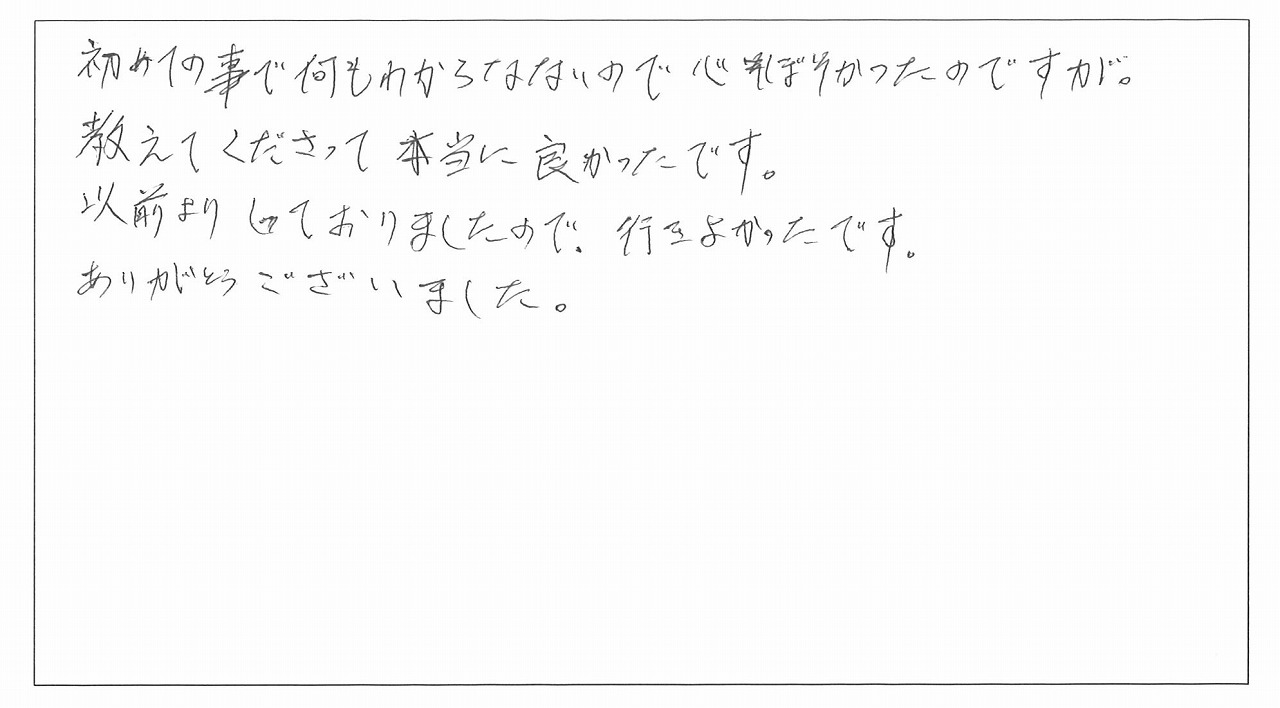 初めての事で何もわからなないので心ぼそかったのですが。
教えてくださって本当に良かったです。
以前より しっておりましたので、行きよかったです。
ありがとうございました。